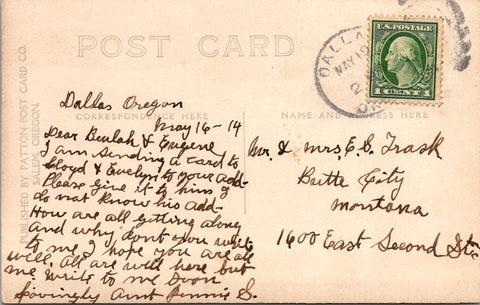 POST CARD
PUBLISHED BY PATTON POST CARD CO.
SALEM, OREGON.
CORRESPONDENCE HERE
NAME AND ADDRESS HERE
DALLAS
MAY
2
U.S. POSTAGE
1 CENT 1
Dallas Oregon
May 16-14
Dear Beulah & Eugene
I am sending a card to
Lloyd & Evelyn to your add-
Please give it to him I
do not know his add-
How are all getting along
and why dont you write
to me I hope you are all
well. All are well here but
me write to me soon
Lovingly Aunt Pennie S.
Mr. & Mrs. E. G. Trask
Butte City
Montana
1600 East Second St.